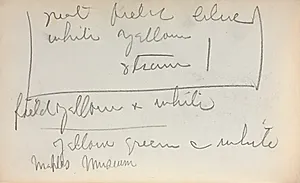 neat field blue
white yellow
stream
field yellow & white
yellow green & white
Museum